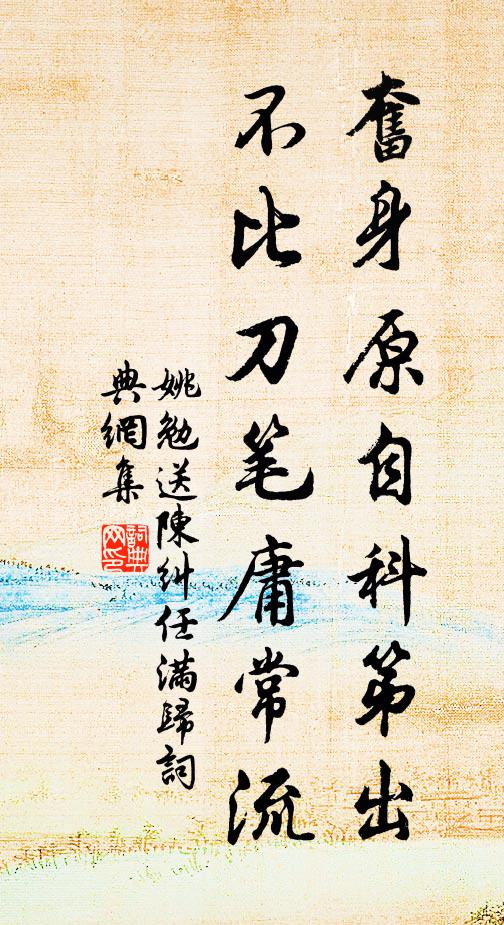 奮身原自科第出
不比刀笔庸常流
姚勉送陳糾任滿歸詞
典網集
詞典
网印